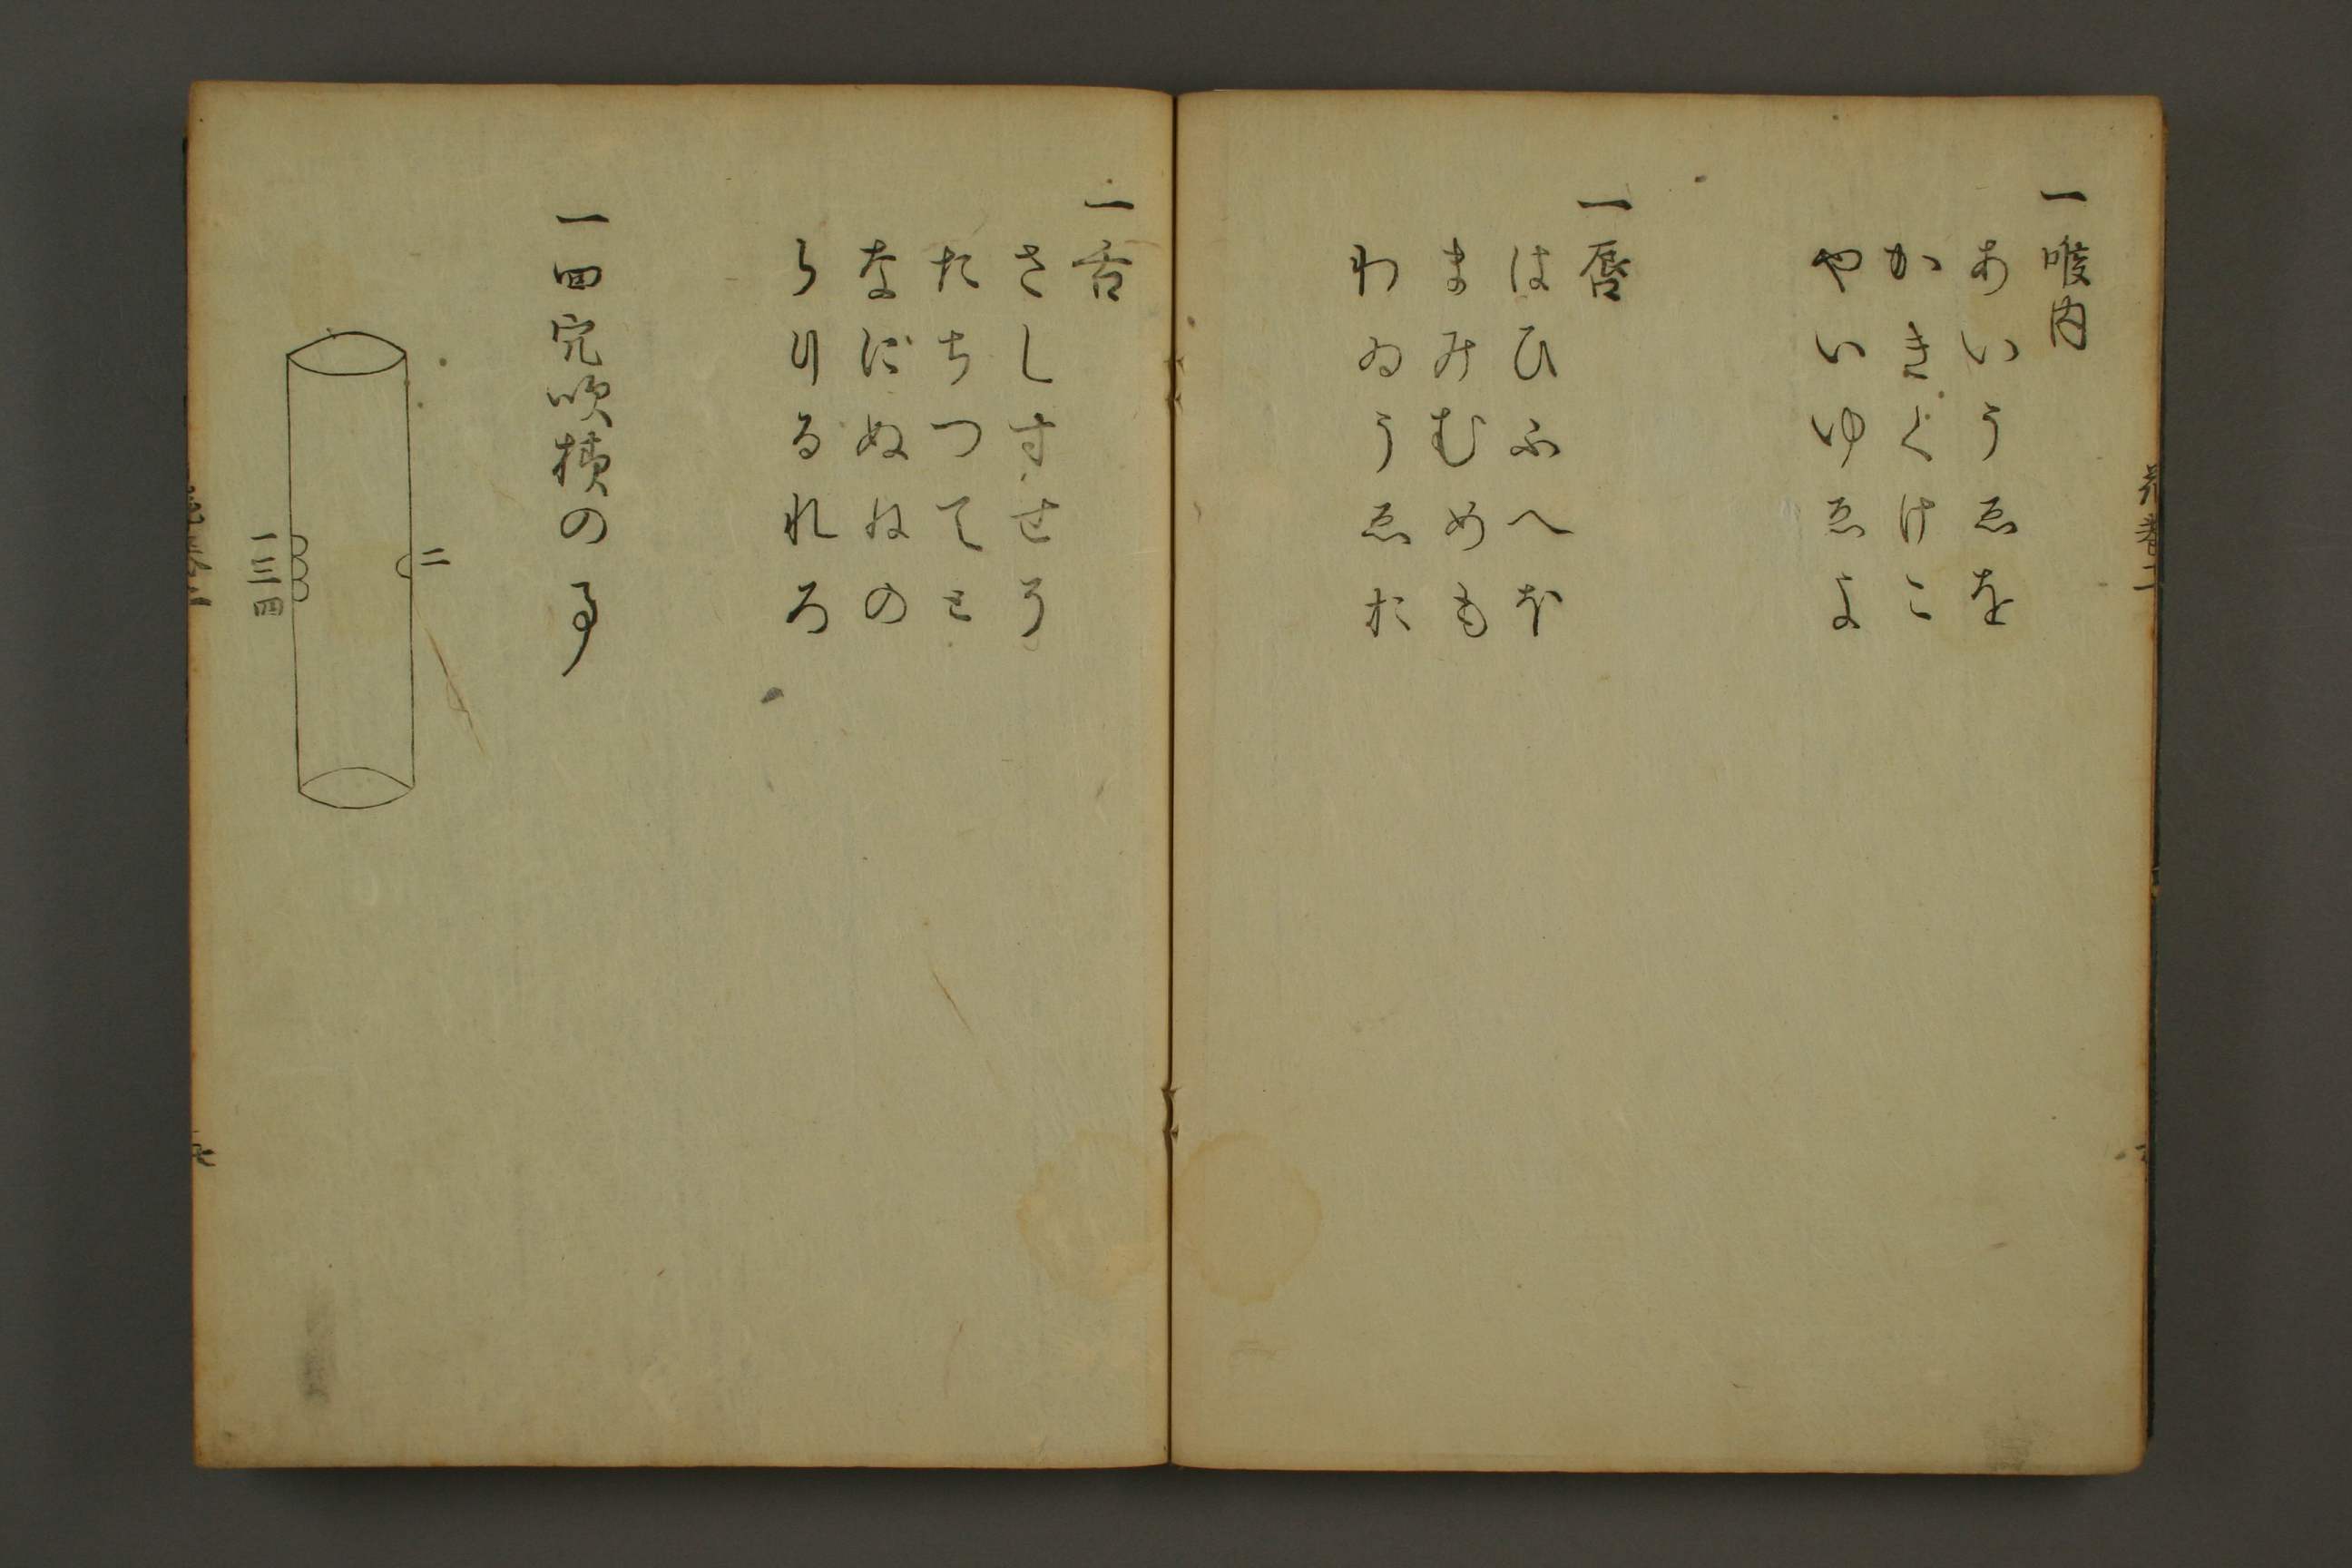 一喉内
あいうゑを
かきくけこ
やいゆゑよ
一唇
はひふへほ
まみむめも
わゐうゑお
一舌
さしすせそ
たちつてと
なにぬねの
らりるれろ
一四穴吹様の事
二
一三四